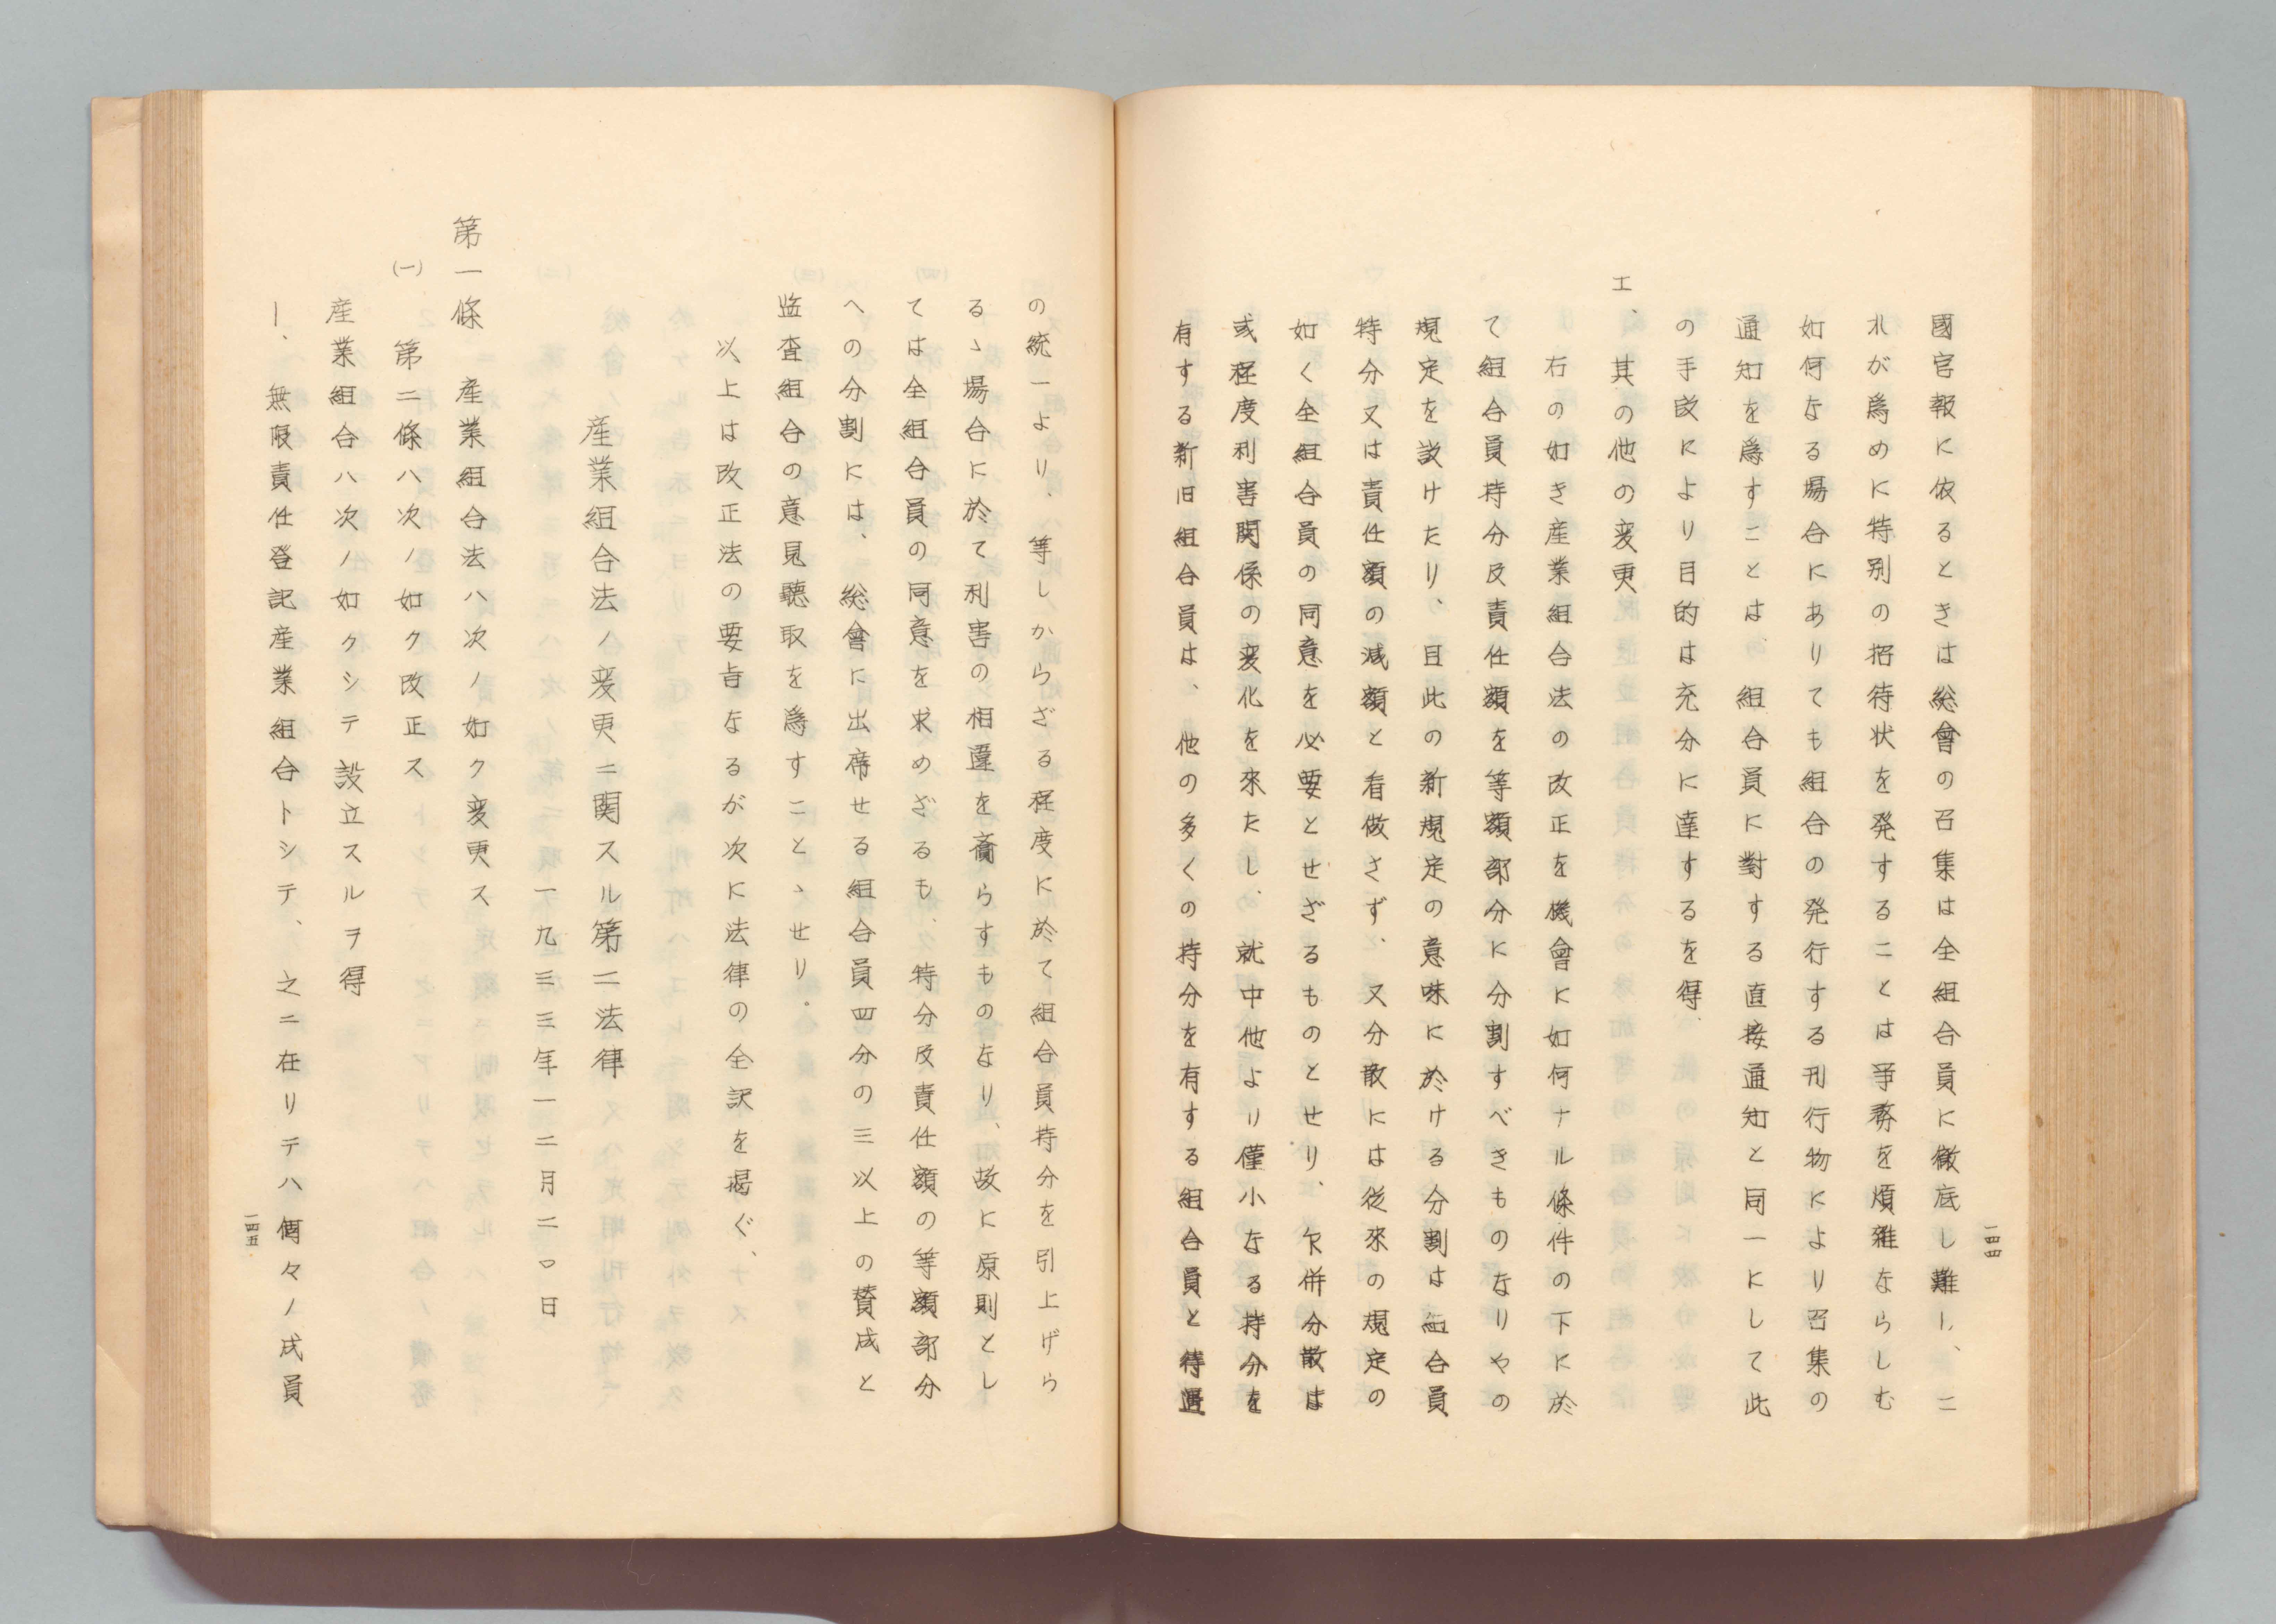 一四四
國官報に依るときは総會の召集は全組合員に徹底し難し、こ
れが爲めに特別の招待状を発することは爭務を煩雑ならしむ
如何なる場合にありても組合の発行する刊行物により召集の
通知を爲すことは、組合員に對する直接通知と同一にして此
の手段により目的は充分に達するを得、
エ、其の他の変更
右の如き産業組合法の改正を機會に如何ナル條件の下に於
て組合員持分及責任額を等額部分に分割すべきものなりやの
規定を設けたり、且此の新規定の意味に於ける分割は組合員
特分又は責任額の減額と看做さず、又分散には従來の規定の
如く全組合員の同意を必要とせざるものとせり、欠併分散は
或程度利害関係の変化を來たし、就中他より僅小なる持分を
有する新旧組合員は、他の多くの持分を有する組合員と待遇
の統一より、等しからざる程度に於て組合員持分を引上げら
るゝ場合に於て利害の相違を齎らすものなり、故に原則とし
ては全組合員の同意を求めざるも、特分及責任額の等額部分
への分割には、総會に出席せる組合員四分の三以上の賛成と
監査組合の意見聽取を爲すことゝせり。
以上は改正法の要旨なるが次に法律の全訳を掲ぐ、
産業組合法ノ変更ニ関スル第二法律
一九三三年一二月二〇日
第一條　産業組合法ハ次ノ如ク変更ス
(一)　第二條ハ次ノ如ク改正ス
産業組合ハ次ノ如クシテ設立スルヲ得
1、無限責任登記産業組合トシテ、之ニ在リテハ個々ノ成員
一四五